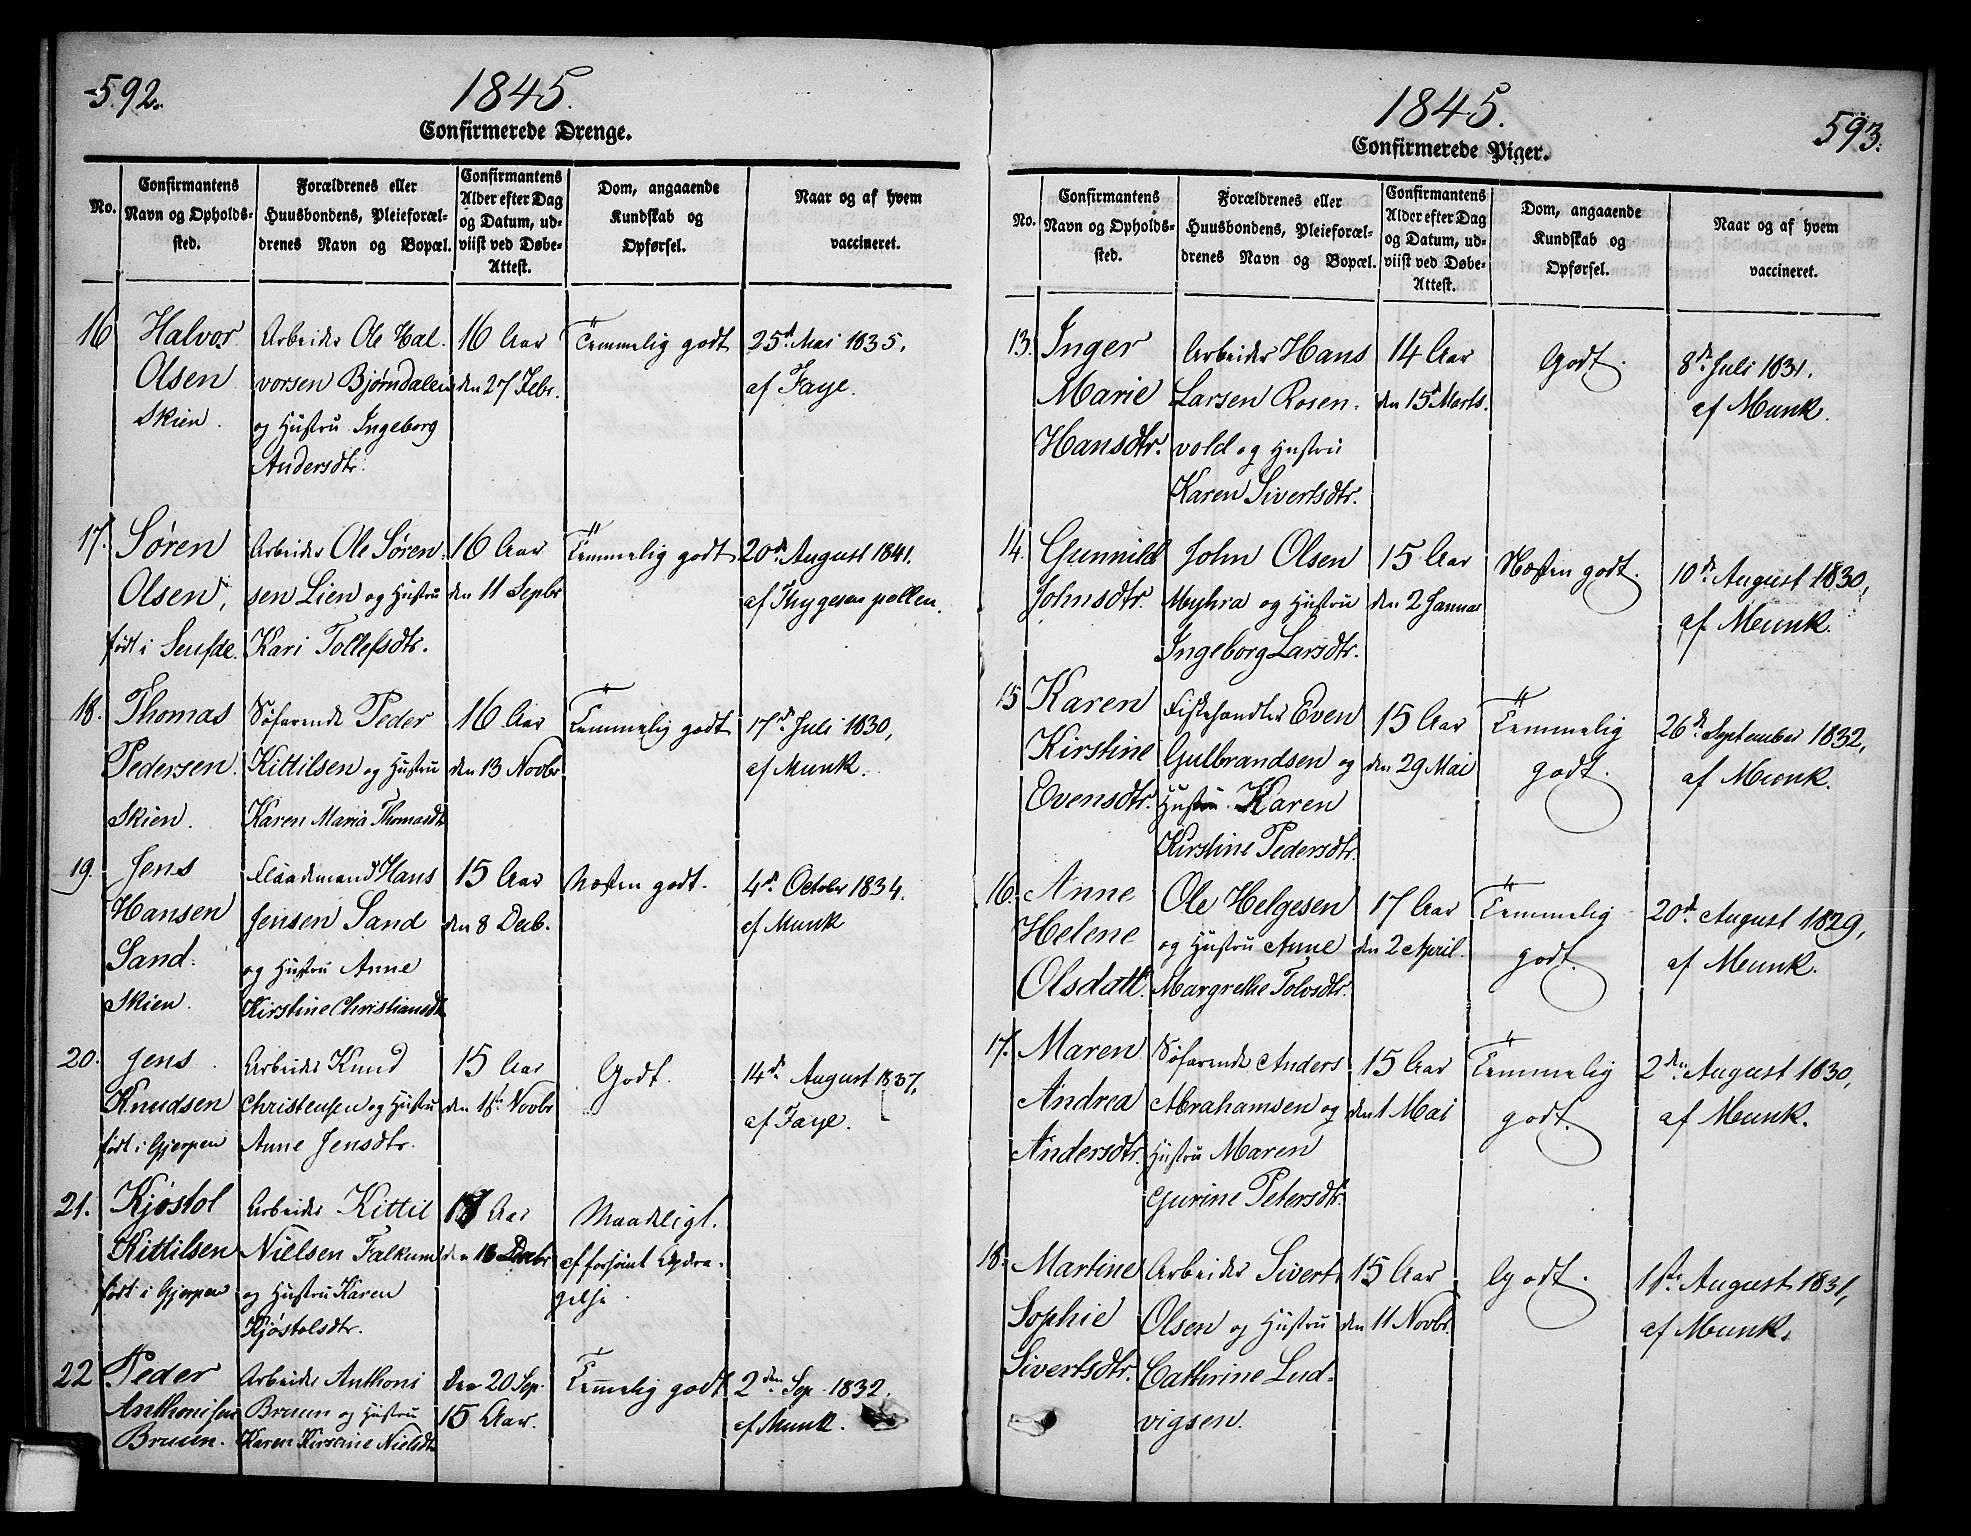 592.
1845.
Confirmerede Drenge.
No.
Confirmantens Navn og Opholds-sted.
Forældrenes eller Huusbondens, Pleieforæl-drenes Navn og Bopæl.
Confirmantens Alder efter Dag og Datum, ud-viist ved Døbe-Attest.
Dom, angaaende Kundskab og Opførsel.
Naar og af hvem vaccineret.
16 Halvor Arbeider Ole Hal- 16 Aar Temmelig godt 25d. Mai 1835.
Olsen vorsen Bjørndalen den 27 Febr. af Faye.
Skien. og Hustru Ingeborg
Andersdtr.
17. Søren Arbeider Ole Søren- 16 Aar Temmelig godt 20d. August 1841.
Olsen, sen Lien og Hustru den 11 Sepbr af Thygesen pollen.
født i Kari Tollefsdtr.
18. Thomas Søfarende Peder 16 Aar Temmelig godt 17d. Juli 1830,
Pedersen. Kittilsen og Hustru den 13 Novbr af Munk.
Skien. Karen Maria Thomasdtr
19. Jens Flaadmand Hans 15 Aar Næsten godt. 4d. October 1834.
Hansen Jensen Sand den 8 Decb. af Munk
Sand. og Hustru Anne
Skien. Kirstine Christiansdtr
20. Jens Arbeider Knud 15 Aar Godt. 14d. August 1837,
Knudsen Christensen og Hustru den Novbr af Faye.
født i Gjerpen Anne Jensdtr.
21. Kjøstol Arbeider Kittil Aar Maadeligt.
Kittilsen Nielsen Falkum den Decbr af forsømt Opdra-
født i Gjerpen og Hustru Karen gelse.
Kjøstolsdtr.
22 Peder Arbeider Anthoni den 20 Sep. Temmelig godt 2den Sep. 1832.
Anthonisen Bruun og Hustru 15 Aar. af Munk.
Bruun. Karen Kirstine Nielsdtr
1845.
593.
Confirmerede Piger.
No.
Confirmantens Navn og Opholds-sted.
Forældrenes eller Huusbondens, Pleieforæl-drenes Navn og Bopæl.
Confirmantens Alder efter Dag og Datum, ud-viist ved Døbe-Attest.
Dom, angaaende Kundskab og Opførsel.
Naar og af hvem vaccineret.
13. Inger Arbeider Hans 14 Aar Godt. 8de Juli 1831.
Marie Larsen Rosen- den 15 Marts. af Munk.
Hansdtr. vold og Hustru
Karen Sivertsdtr.
14. Gunnild John Olsen 15 Aar Næsten godt. 10de August 1830,
Johnsdtr. Myhra og Hustru den 2 Januar af Munk.
Ingeborg Larsdtr.
15 Karen Fiskehandler Even 15 Aar Temmelig 26de September 1832,
Kirstine Gulbrandsen og den 29 Mai godt. af Munk.
Evensdtr. Hustru Karen
Kirstine Pedersdtr.
16. Anne Ole Helgesen 17 Aar Temmelig 20de August 1829,
Helene og Hustru Anne den 2 April. godt. af Munk.
Olsdatt. Margrethe Tolvsdtr.
17. Maren Søfarende Anders 15 Aar Temmelig 2den August 1830,
Andrea Abrahamsen og den 1 Mai godt. af Munk.
Andersdtr. Hustru Maren
Gurine Petersdtr.
18. Martine Arbeider Sivert 15 Aar Godt. August 1831,
Sophie Olsen og Hustru den 11 Novbr. af Munk.
Sivertsdtr. Cathrine Lud-
vigsen.